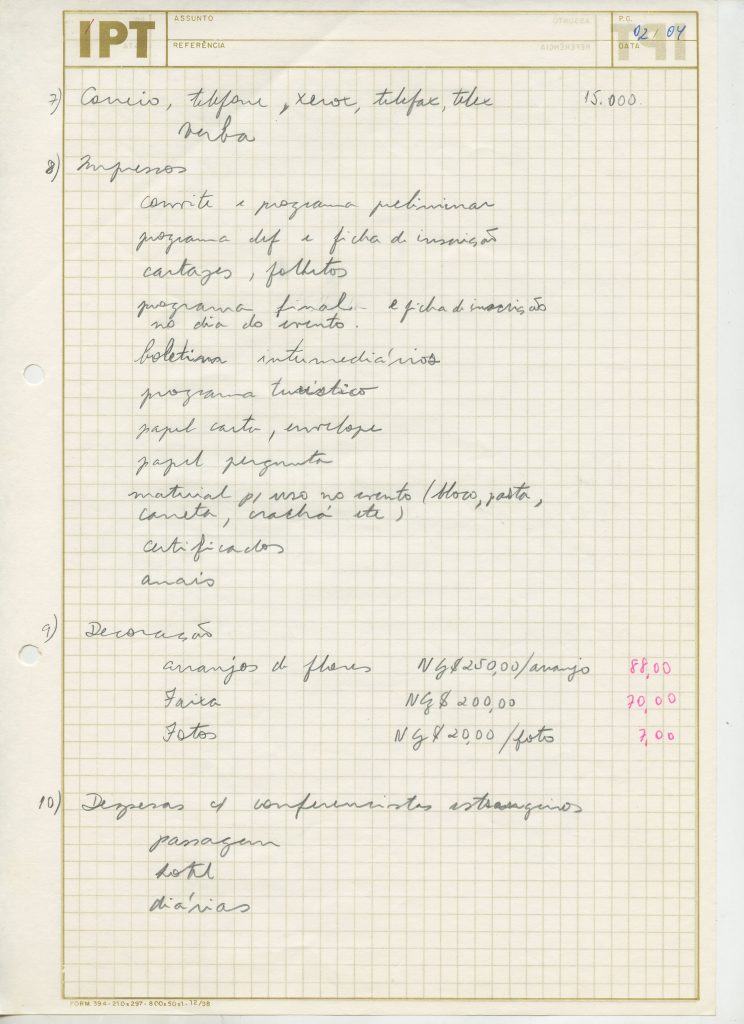 IPT
ASSUNTO
REFERÊNCIA
P.G. 02/04
DATA
7) Correio, telefone, xerox, telefax, telex 15.000.
verba
8) Impressos
convite e programa preliminar
programa def e ficha de inscrição
cartazes, folhetos
programa final - e ficha de inscrição
no dia do evento.
boletins intermediários
programa turístico
papel carta, envelope
papel pergunta
material p/ uso no evento (bloco, pasta,
caneta, crachá etc)
certificados
anais
9) Decoração
arranjos de flores NCz$ 250,00/arranjo 88,00
Faixa NCz$ 200,00 70,00
Fotos NCz$ 20,00/foto 7,00
10) Despesas c/ conferencistas estrangeiros
passagem
hotel
diárias
FORM. 394 - 210x297 - 800x50x1 - 12/88